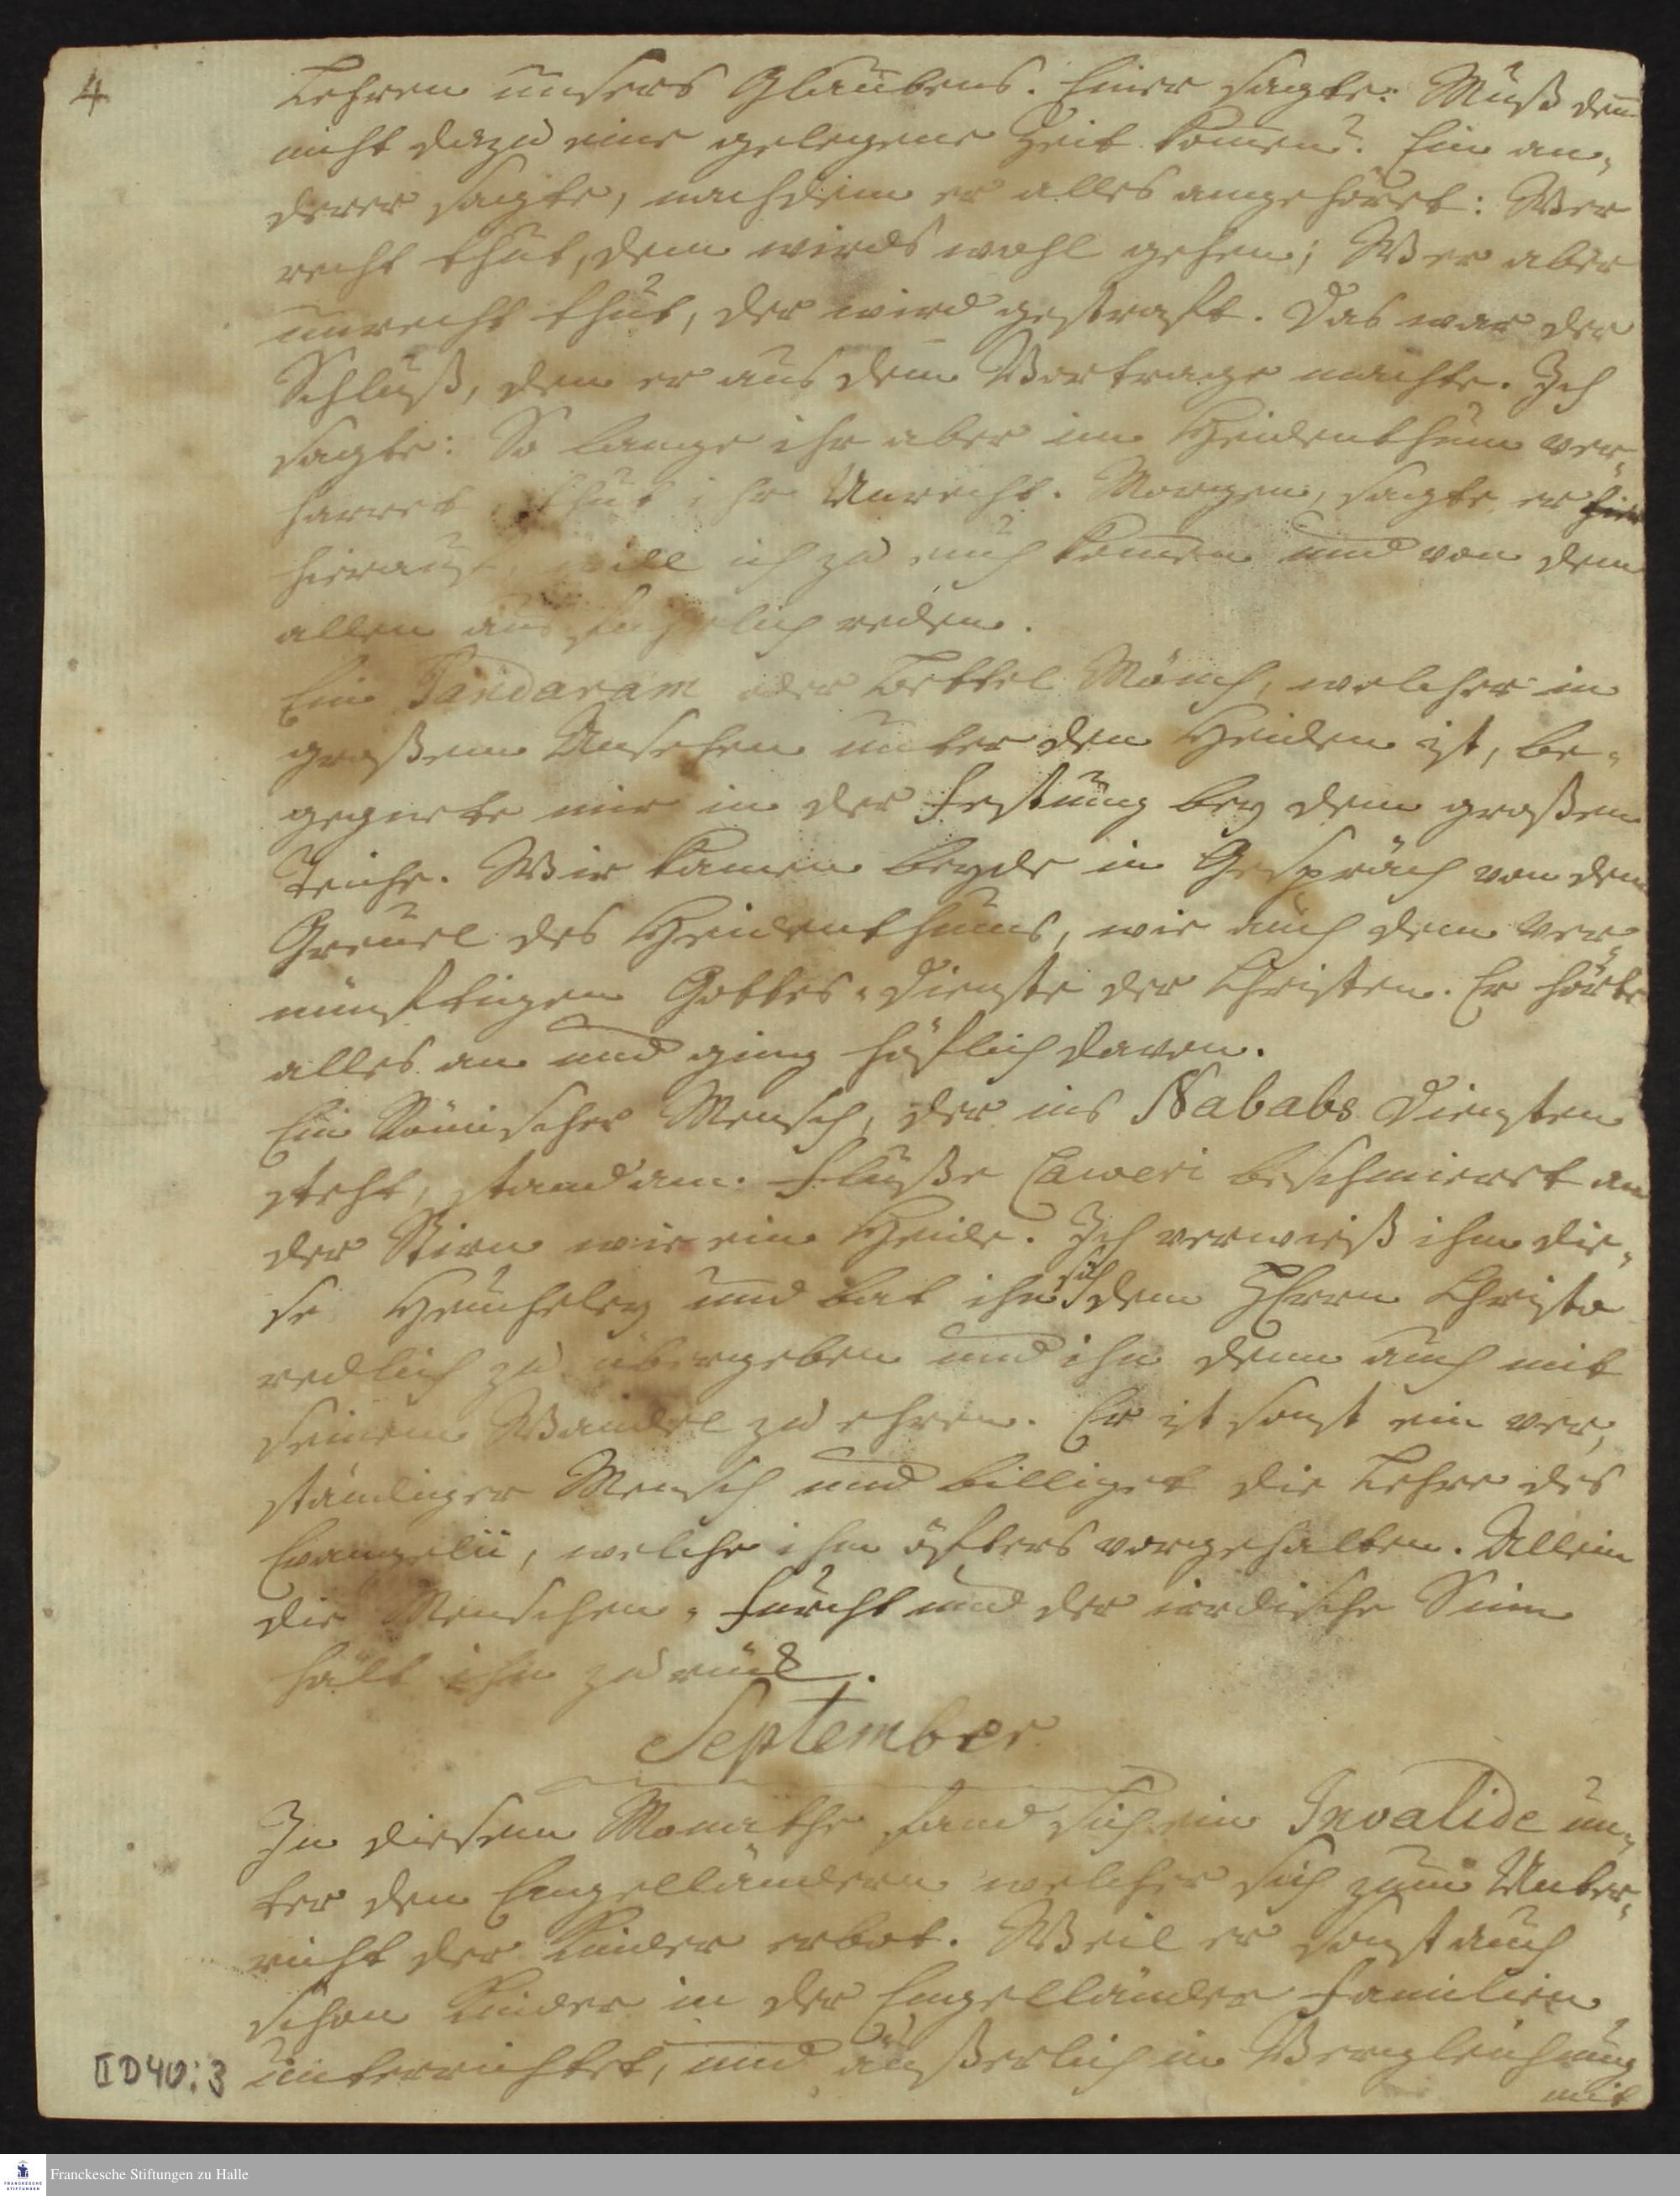 4
Lehren unsers Glaubens. Einer sagte: Muß den̅
nicht dazu eine gelegene Zeit kom̅en? Ein an-
derer sagte, nachdem er alles angehöret: Wer
recht thut, dem wirds wohl gehen; Wer aber
unrecht thut, der wird gestraft. Das war der
Schluß, den er aus dem Vortrage machte. Ich
sagte: So lange ihr aber im Heidenthum ver-
harret, thut ihr Unrecht. Morgen, sagte er
hierauf, will ich zu euch kom̅en und von dem
allen ausführlich reden.
Ein Pandaram oder Bettel Mönch, welcher in
großem Ansehen unter den Heiden ist, be-
gegnete mir in der Festung bey dem großen
Teiche. Wir kamen beyde in Gespräch von dem
Greuel des Heidenthums, wie auch dem ver-
nünftigen Gottes-Dienste der Christen. Er hörte
alles an und ging höflich davon.
Ein Römischer Mensch, der ins Nababs Diensten
steht, stand am Fluße Caweri beschmieret an
der Stirn wie ein Heide. Ich verwieß ihm die-
se Heucheley und bat ihn sich dem HErrn Christo
redlich zu übergeben und ihn denn auch mit
seinem Wandel zu ehren. Er ist sonst ein ver-
ständiger Mensch und billiget die Lehre des
Evangelii, welche ihm öfters vorgehalten. Allein
die Menschen-Furcht und der irdische Sinn
hält ihn zurück.
September
In diesem Monathe fand sich ein Invalide un-
ter den Engelländern welcher sich zum Unter-
richt der Kinder erbot. Weil er sonst auch
schon Kinder in der Engelländer Familien
unterrichtet, und äußerlich in Vergleichung
mit
II D 40:3
FRANCKESCHE STIFTUNGEN
Franckesche Stiftungen zu Halle